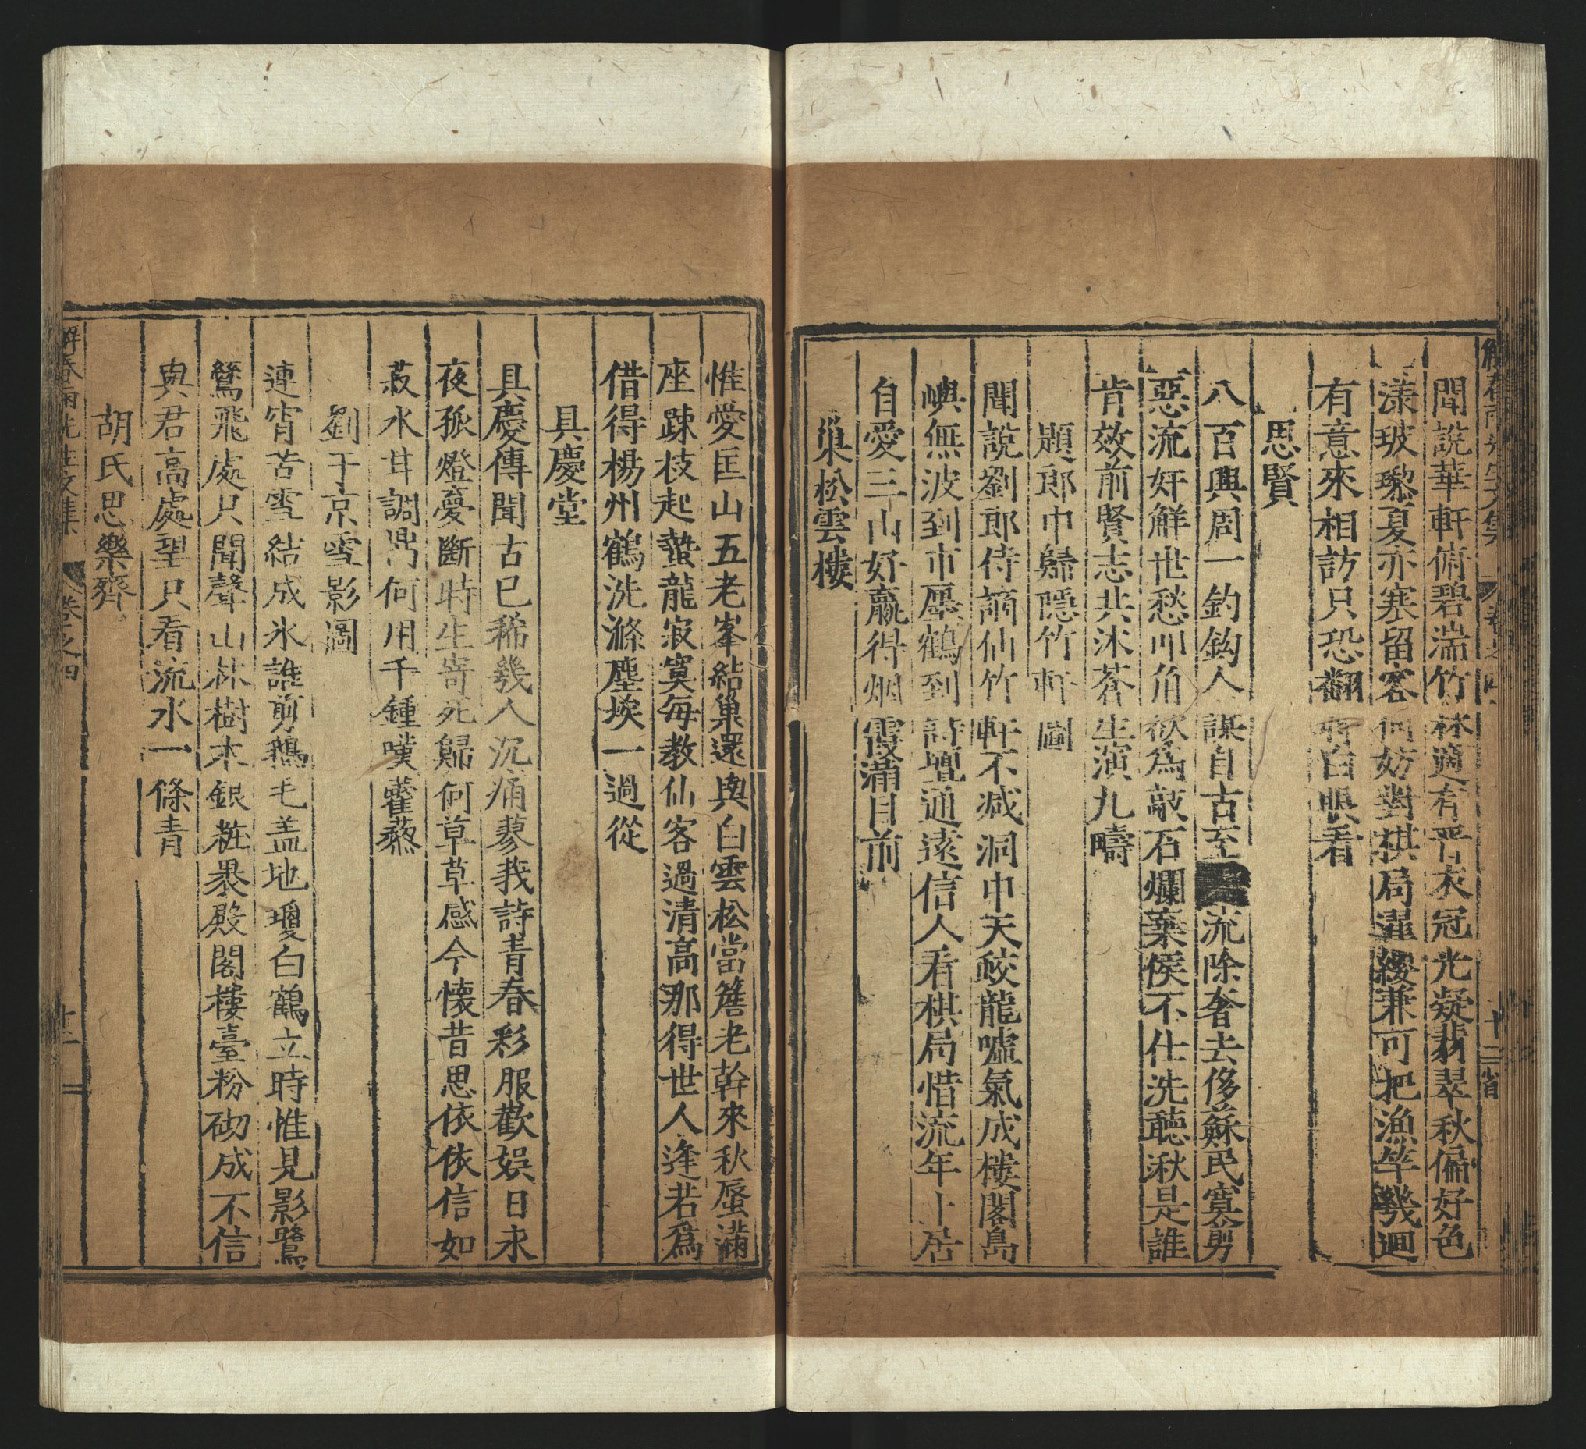 聞說華軒俯碧湍竹林適有晉衣冠光凝翡翠秋偏好色
漾玻瓈夏亦寒留客何妨對棋局濯纓兼可把漁竿幾迴
有意來相訪只恐翻將白眼看
思賢
八百興周一釣鈎人謀自古至流除奢去侈蘇民寡剪
惡流奸解世愁叩角欲為敲石爛棄侯不仕洗聽湫是誰
肯效前賢志共沐蒼生演九疇
題郎中歸隱竹軒圖
聞說劉郎侍謫仙竹軒不減洞中天蛟龍噓氣成樓閣島
嶼無波到市廛鶴到詩壇通遠信人看棋局惜流年十居
自愛三山好贏得烟霞滿目前
巢松雲樓
惟愛匡山五老峯結巢還與白雲松當簷老幹來秋蜃滿
座踈枝起蟄龍寂寞每教仙客過清高那得世人逢若為
借得楊州鶴洗滌塵埃一過從
具慶堂
具慶傳聞古已稀幾人沉痛蓼莪詩青春彩服歡娛日永
夜孤燈憂斷時生寄死歸何草草感今懷昔思依依信如
菽水甘調鼎何用千鍾嘆藿藜
劉于京雪影圖
連宵苦雪結成氷誰剪鵝毛盖地瓊白鶴立時惟見影鷺
鶿飛處只聞聲山林樹木銀粧裹殿閣樓臺粉砌成不信
與君高處望只看流水一條青
胡氏思樂齋
解春雨先生文集 卷之四 十二